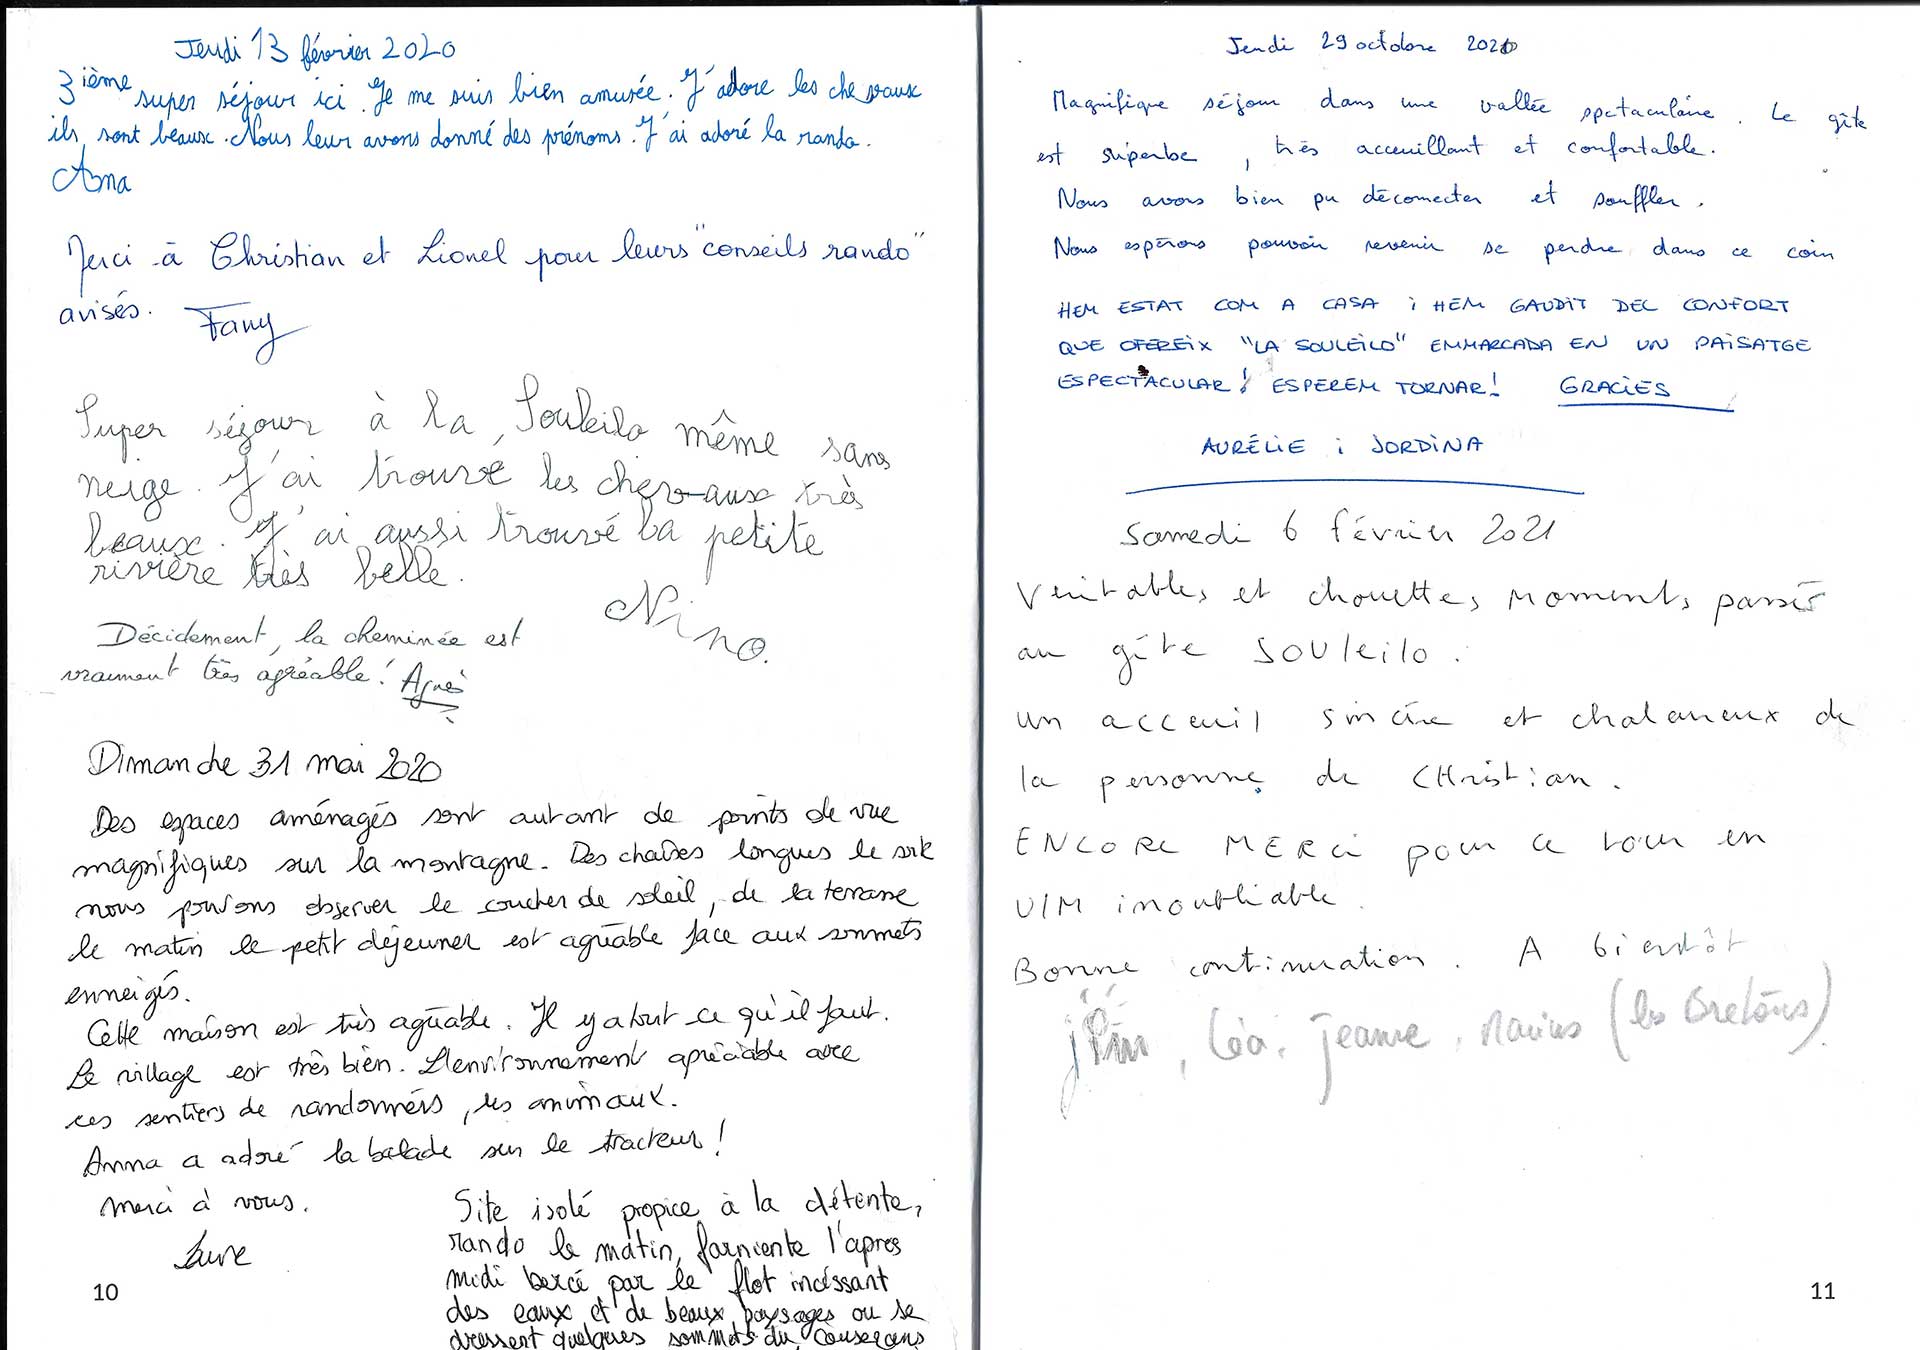 Jeudi 13 février 2020
3ième super séjour ici. Je me suis bien amusée. J'adore les chevaux
ils sont beaux. Nous leur avons donné des prénoms. J'ai adoré la rando.
Ana
Merci à Christian et Lionel pour leurs "conseils rando"
avisés. Fany
Super séjour à la Souleilo même sans
neige. J'ai trouvé les chevaux très
beaux. J'ai aussi trouvé la petite
rivière très belle.
Nino.
Décidement, la cheminée est
vraiment très agréable! Agnès
Dimanche 31 mai 2020
Des espaces aménagés sont autant de points de vue
magnifiques sur la montagne. Des chaises longues le soir
nous pouvons observer le coucher de soleil, de la terrasse
le matin le petit déjeuner est agréable face aux sommets
enneigés.
Cette maison est très agréable. Il y a tout ce qu'il faut.
Le village est très bien. L'environnement apréciable avec
ces sentiers de randonnées, les animaux.
Anna a adoré la balade sur le tracteur!
Merci à vous.
Laure
Site isolé propice à la détente,
rando le matin, farniente l'apres
midi bercé par le flot incéssant
des eaux et de beaux paysages ou se
dressent quelques sommets du Couserans
10
Jeudi 29 octobre 2020
Magnifique séjour dans une vallée spectaculaire. Le gîte
est superbe, très acceuillant et confortable.
Nous avons bien pu déconnecter et souffler.
Nous espérons pouvoir revenir se perdre dans ce coin
HEM ESTAT COM A CASA i HEM GAUDIT DEL CONFORT
QUE OFEREIX "LA SOULEILO" EMMARCADA EN UN PAISATGE
ESPECTACULAR! ESPEREM TORNAR! GRACIES
AURÉLIE i JORDINA
Samedi 6 février 2021
Veritables et chouettes moments passés
au gîte SOUleilo.
un acceuil sincère et chaleureux de
la personne de CHristian.
ENCORE MERCi pour ce tour en
UlM inoubliable.
Bonne continuation. A bientôt
, Léa, Jeanne, Marius (les Bretons)
11